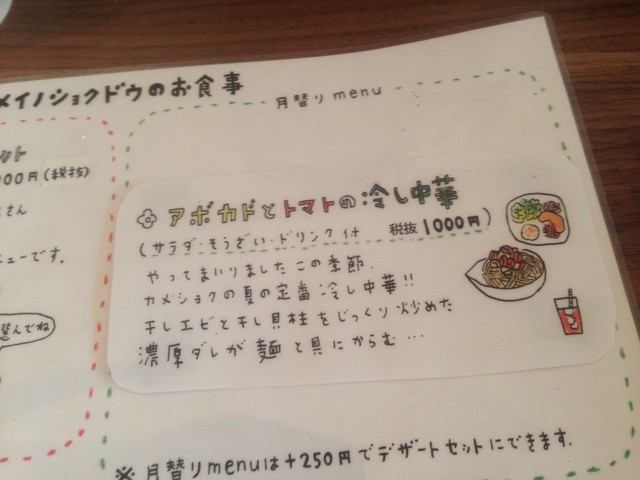 メイノショクドウのお食事
月替りmenu
アボカドとトマトの冷し中華
(サラダ・そうざい・ドリンク付 税抜1000円)
やってまいりましたこの季節.
カメショクの夏の定番冷し中華!!
干しエビと干し貝柱をじっくり炒めた
濃厚ダレが麺と具にからむ…
※月替りmenuは+250円でデザートセットにできます.
00円(税抜)
さん
ニューです.
選んでね